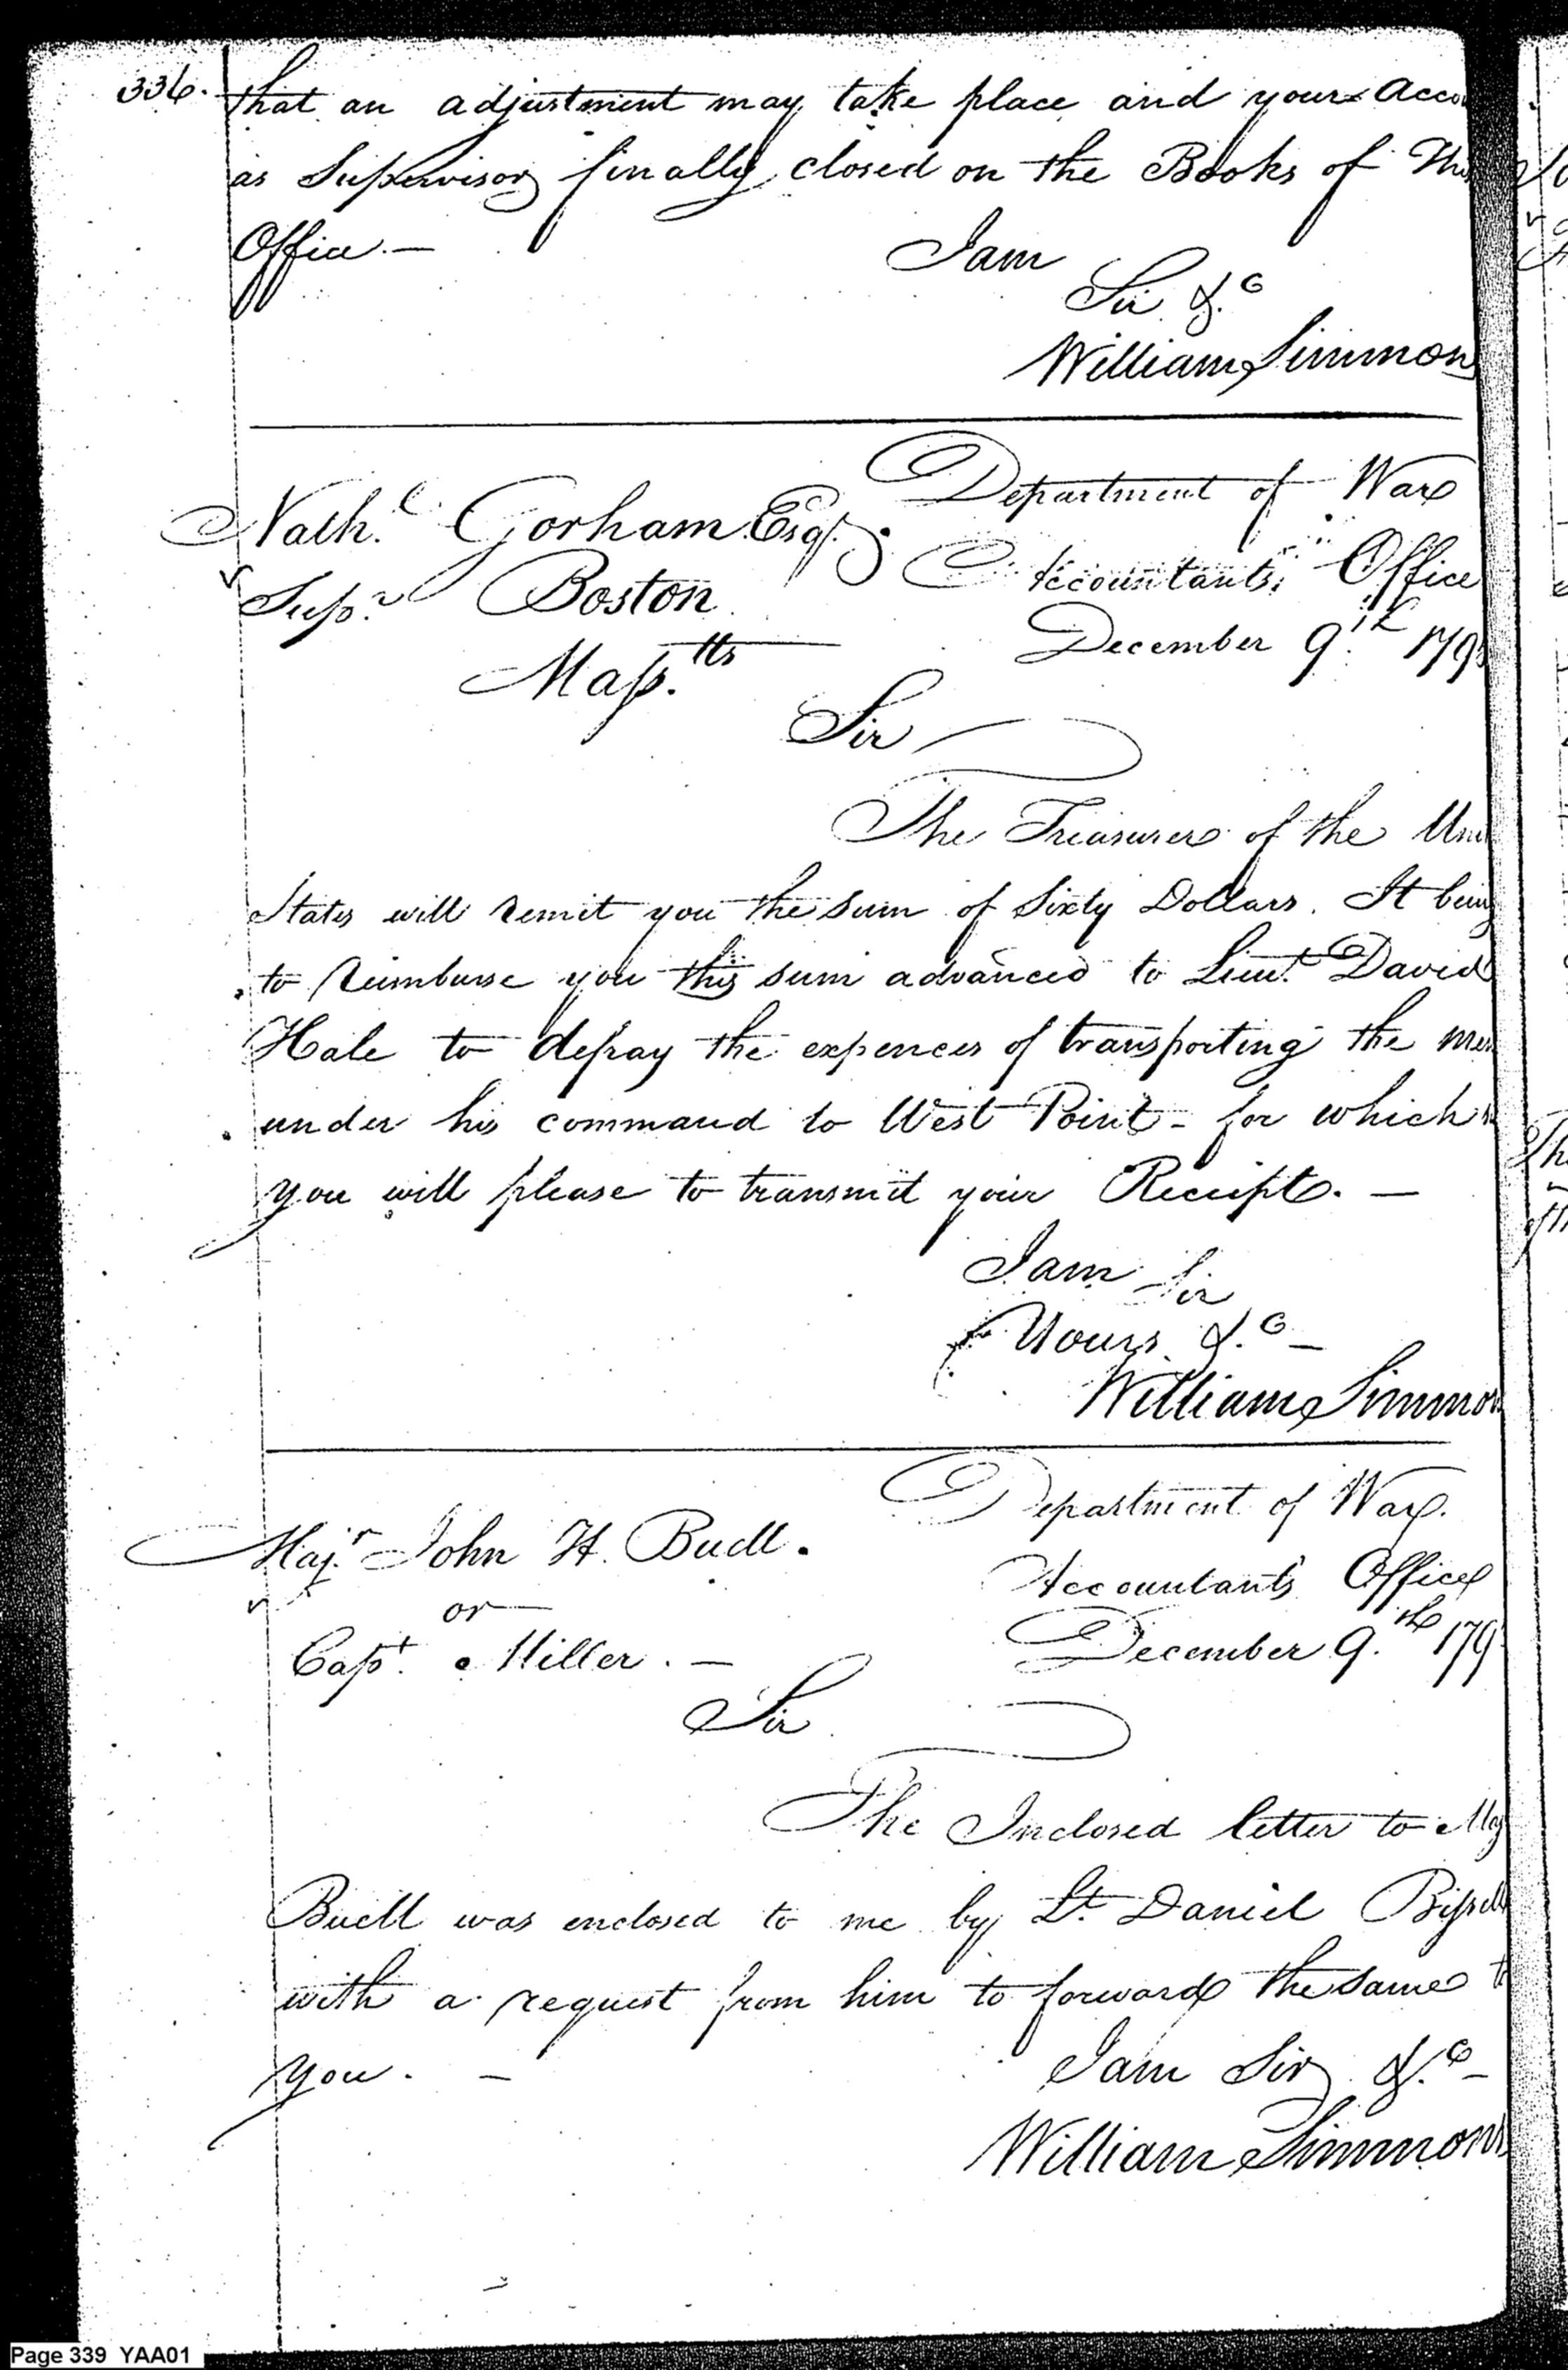 336.
that an adjustment may take place and your Acco
as Supervisor finally closed on the Books of Th
Office. —
I am
Sir &c
William Simmon
Nathl. Gorham Esqr.
Department of War
Accountants Office
Supr. Boston
December 9th 179
Masstts
Sir
The Treasurer of the Un
States will remit you the sum of Sixty Dollars. It being
to reimburse you this sum advanced to Lieut. David
Hale to defray the expences of transporting the men
under his command to West Point - for which
you will please to transmit your Receipt. —
I am Sir
Yours &c —
William Simmon
Department of War.
Majr. John H. Buell.
Accountants Office
or
December 9.th 179
Capt. Miller. —
Sir
The Inclosed letter to Maj
Buell was enclosed to me by Lt. Daniel Bissell
with a request from him to forward the same t
you. —
I am Sir &c —
William Simmons
Page 339 YAA01